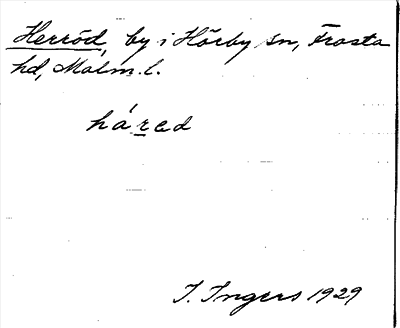 Herröd, by i Hörby sn, Frosta
hd, Malm. l.
háred
I. Ingers 1929